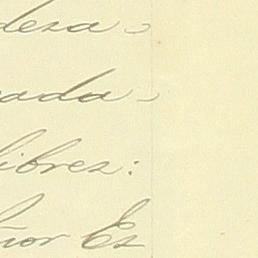 deza-
ada-
libres:
ñor Es